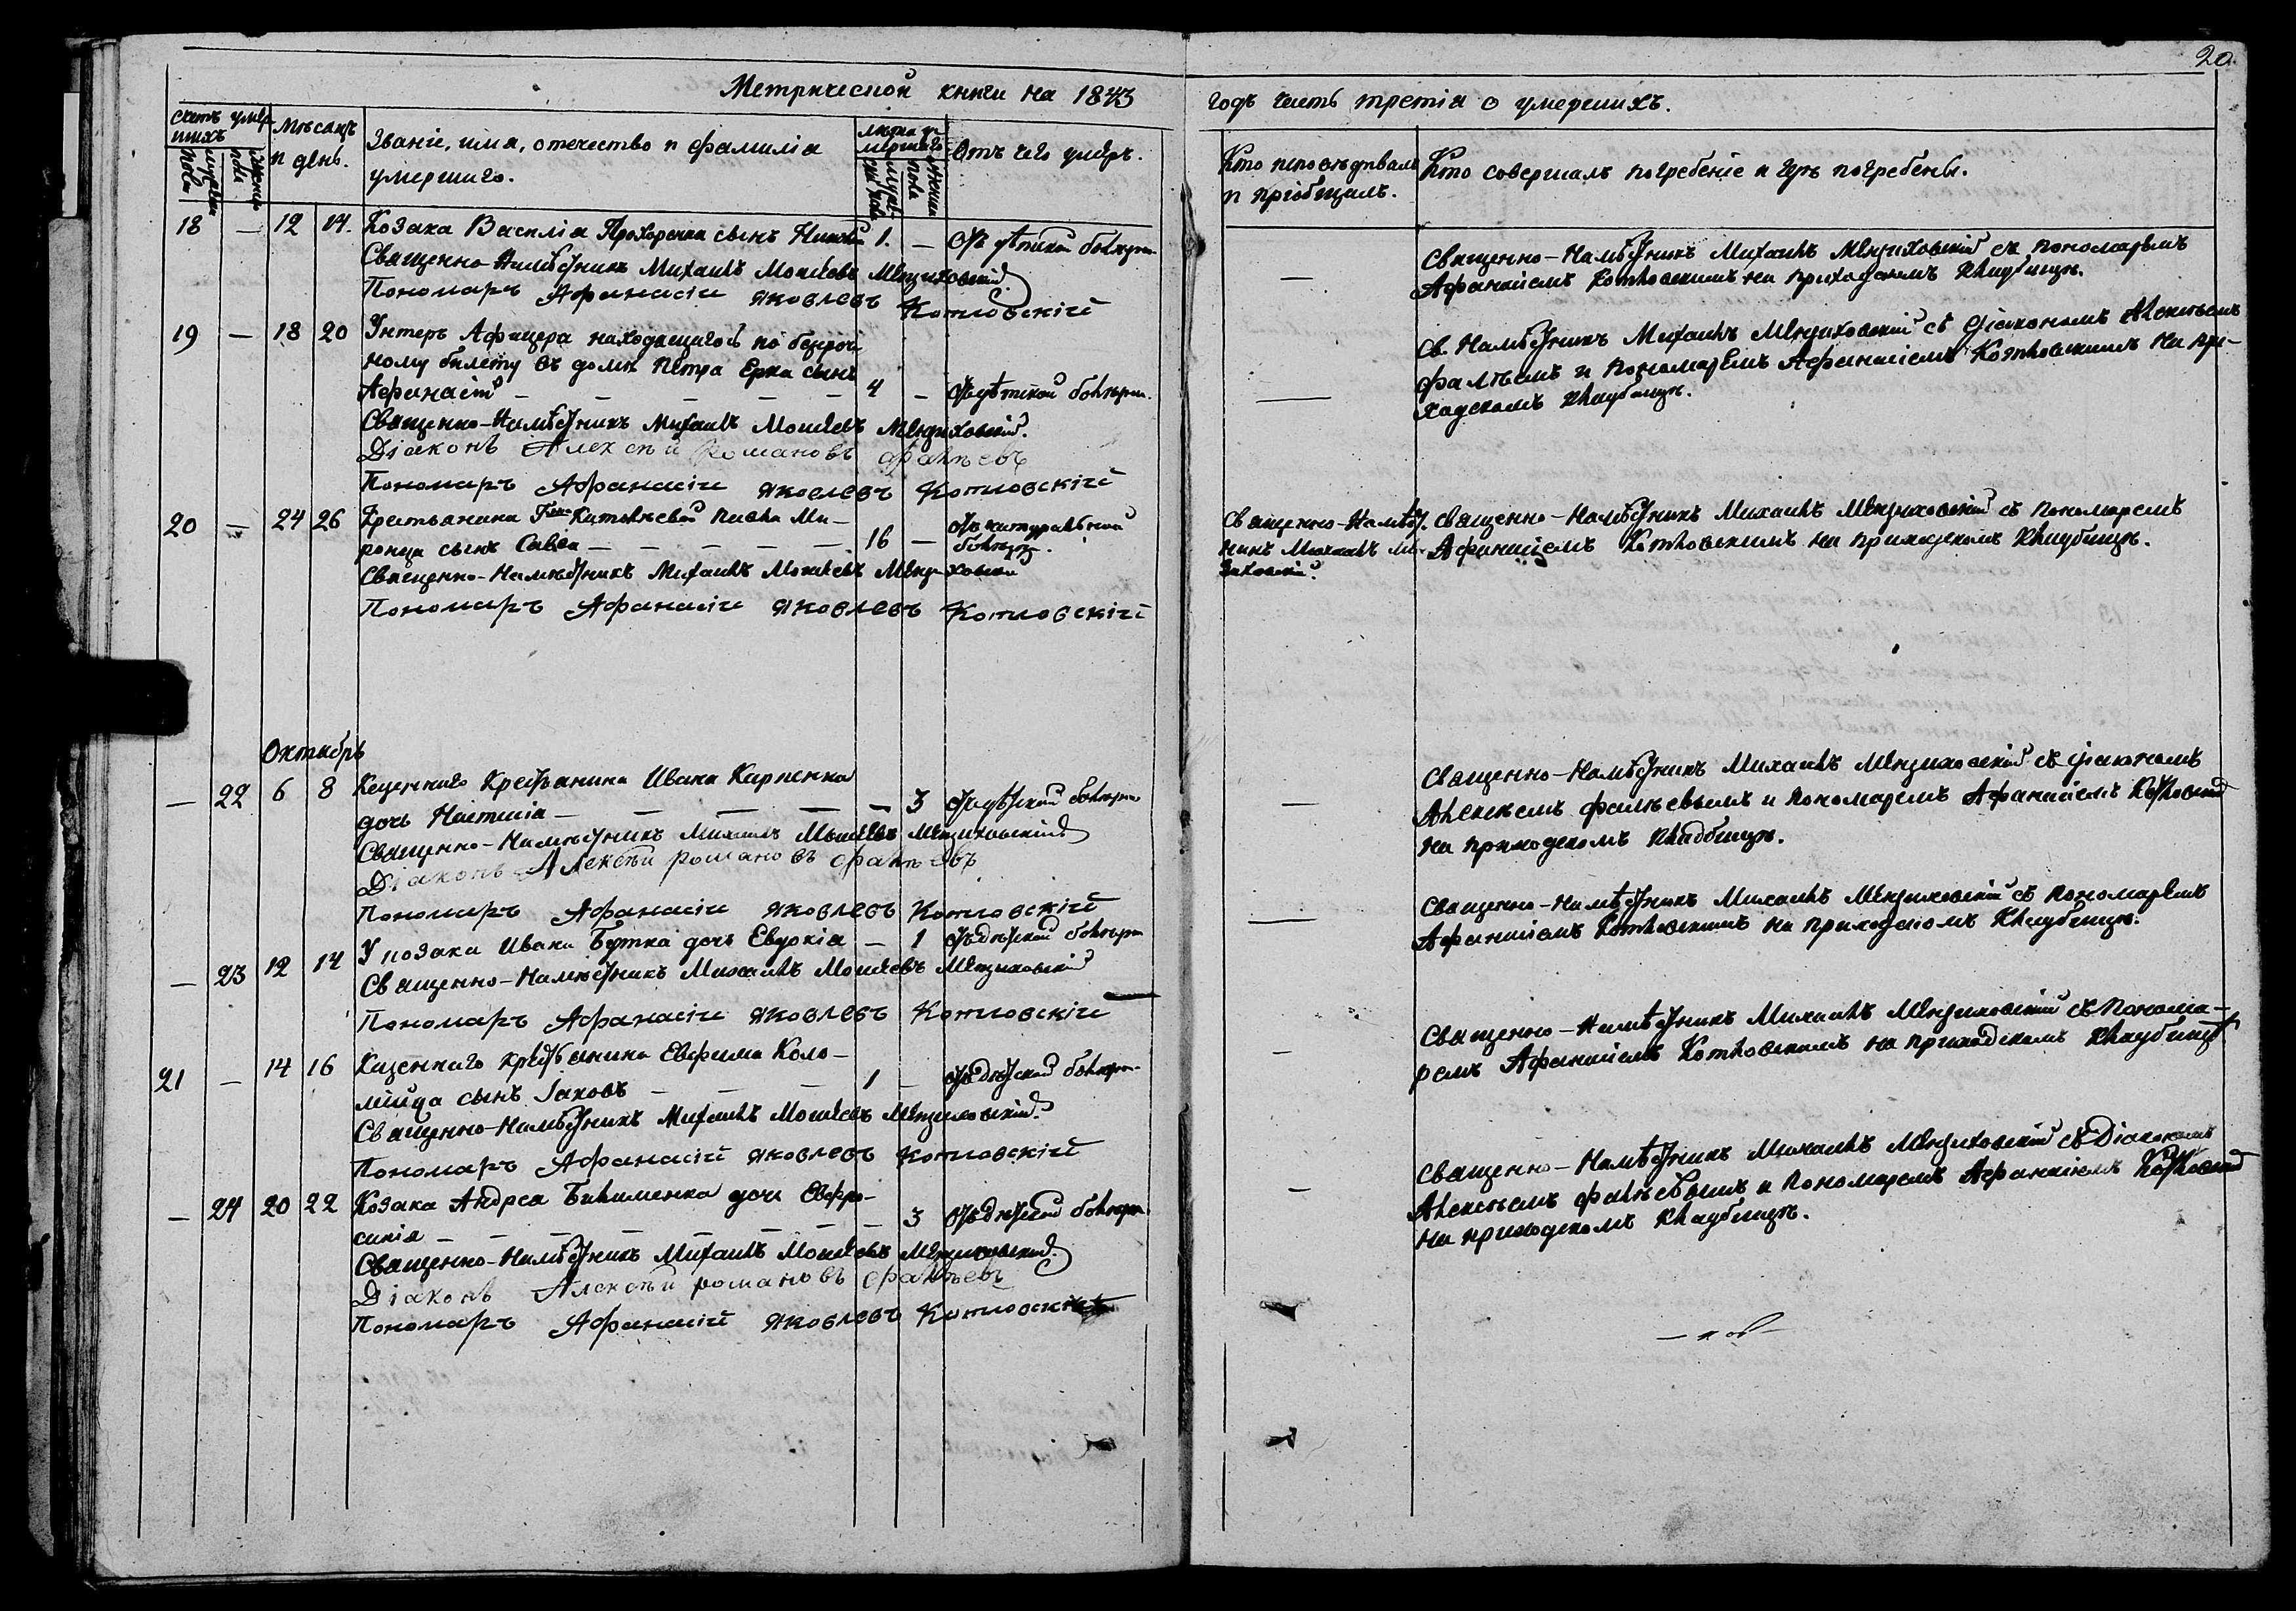 20
Метрической книги на 1843
годъ часть третiя о умершихъ.
Счетъ умер-
шихъ
Мѣсяцъ
и день.
Званiе, имя, отечество и фамилiя
умершаго.
Лѣта у-
мершаго
Отъ чего умеръ.
Кто исповѣдывалъ
и прiобщалъ.
Кто совершалъ погребенiе и гдѣ погребены.
18 — 12 14. Козака Василiя Прохоренка сынъ 1. — Отъ дѣтской болѣзни
Священно-Намѣстникъ Михаилъ Моисѣевъ Мензиховскiй
Пономаръ Афанасiй Яковлевъ Котловскiй
— Священно-Намѣстникъ Михаилъ Мензиховскiй съ пономаремъ
Афанасiемъ Котловскимъ на приходскомъ кладбищѣ.
19 — 18 20 Унтеръ Афицера находящагося по безсроч
ному билету въ домѣ Петра Ерка сынъ
Афанасiй — — — — — 4 — Отъ дѣтской болѣзни.
Священно-Намѣстникъ Михаилъ Моисѣевъ Мензиховскiй.
Дiаконъ Алексѣй Романовъ Фалѣевъ
Пономаръ Афанасiй Яковлевъ Котловскiй
— Св. Намѣстникъ Михаилъ Мензиховскiй съ дiакономъ Алексѣемъ
Фалѣевымъ и пономаремъ Афанасiемъ Котловскимъ на при-
ходскомъ кладбищѣ.
20 — 24 26 Крестьянина Павла Ми-
ронца сынъ Савва — — — — — 16 — Отъ натуральной
болѣзни.
Священно-Намѣстникъ Михаилъ Моисѣевъ Мензиховскiй
Пономаръ Афанасiй Яковлевъ Котловскiй
Священно-Намѣст.
никъ Михаилъ Мен-
зиховскiй.
Священно-Намѣстникъ Михаилъ Мензиховскiй съ пономаремъ
Афанасiемъ Котловскимъ на приходскомъ кладбищѣ.
Октябръ
— 22 6 8 Казеннаго Крестьянина Ивана Карпенка
дочь Настасiя — — — — — 3 Отъ дѣтской болѣзни
Священно-Намѣстникъ Михаилъ Моисѣевъ Мензиховскiй
Дiаконъ Алексѣй Романовъ Фалѣевъ
Пономаръ Афанасiй Яковлевъ Котловскiй
— Священно-Намѣстникъ Михаилъ Мензиховскiй съ дiакономъ
Алексѣемъ Фалѣевымъ и пономаремъ Афанасiемъ Котловским
на приходскомъ кладбищѣ.
— 23 12 14 У козака Ивана Бутка дочь Евдокiя — 1 Отъ дѣтской болѣзни
Священно-Намѣстникъ Михаилъ Моисѣевъ Мензиховскiй
Пономаръ Афанасiй Яковлевъ Котловскiй
— Священно-Намѣстникъ Михаилъ Мензиховскiй съ пономаремъ
Афанасiемъ Котловскимъ на приходскомъ кладбищѣ.
21 — 14 16 Казеннаго крестьянина Евфима Коло-
мiйца сынъ Iаковъ — — — 1 — Отъ дѣтской болѣзни
Священно-Намѣстникъ Михаилъ Моисѣевъ Мензиховскiй.
Пономаръ Афанасiй Яковлевъ Котловскiй
— Священно-Намѣстникъ Михаилъ Мензиховскiй съ Понома-
ремъ Афанасiемъ Котловскимъ на приходскомъ кладбищѣ
— 24 20 22 Козака Андрея дочь Евфро-
синiя — — — — — — 3 Отъ дѣтской болѣзни.
Священно-Намѣстникъ Михаилъ Моисѣевъ Мензиховскiй.
Дiаконъ Алексѣй Романовъ Фалѣевъ
Пономаръ Афанасiй Яковлевъ Котловскiй
— Священно-Намѣстникъ Михаилъ Мензиховскiй съ Дiакономъ
Алексѣемъ Фалѣевымъ и пономаремъ Афанасiемъ Котловским
на приходскомъ кладбищѣ.